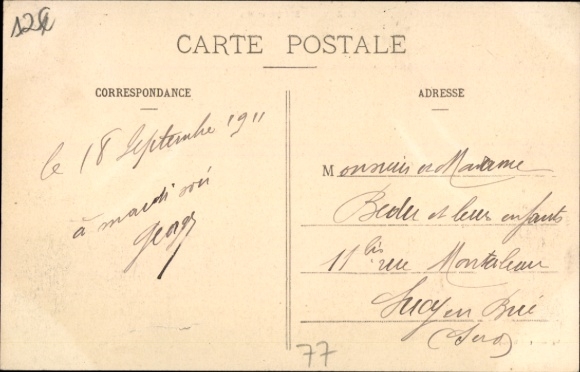 CARTE POSTALE
CORRESPONDANCE
le 18 Septembre 1911
à mardi soir
Georges
ADRESSE
Monsieur et Madame
Beder et leurs enfants
11 bis rue Montaleau
Sucy en Brie
77